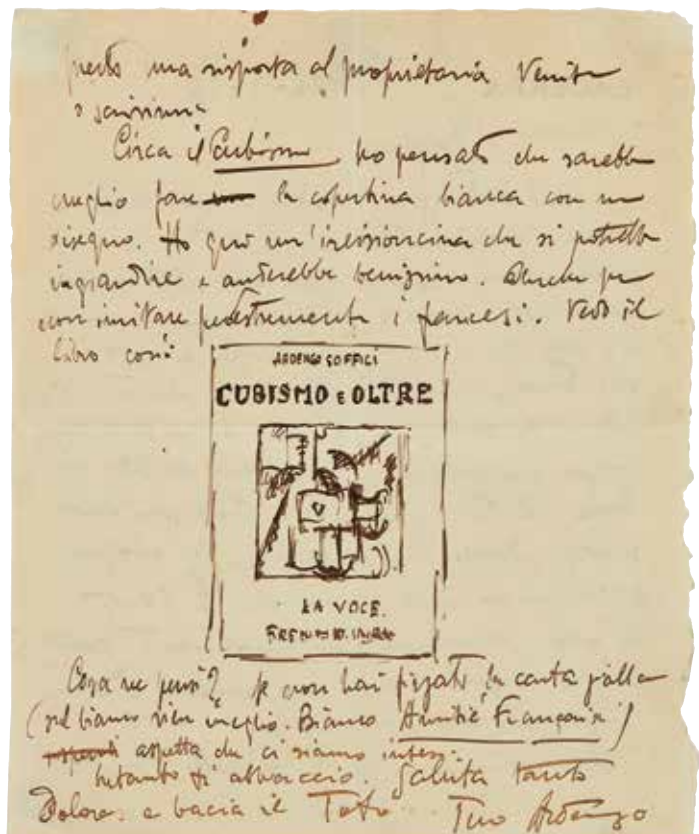 una risposta al proprietario
Circa il Cubismo ho pensato che sarebbe
meglio fare la copertina bianca con un
disegno. Ho qui un'incisioncina che si potrebbe
ingrandire e anderebbe benissimo. Anche per
non imitare pedestremente i francesi. Vedo il
libro così:
ARDENGO SOFFICI
CUBISMO E OLTRE
LA VOCE.
Cosa ne pensi? Se non hai fissato la carta gialla
(sul bianco vien meglio. Bianco Amitié Française)
aspetta che ci siamo intesi.
Intanto ti abbraccio. Saluta tanto
Dolores e bacia il Totò. Tuo Ardengo